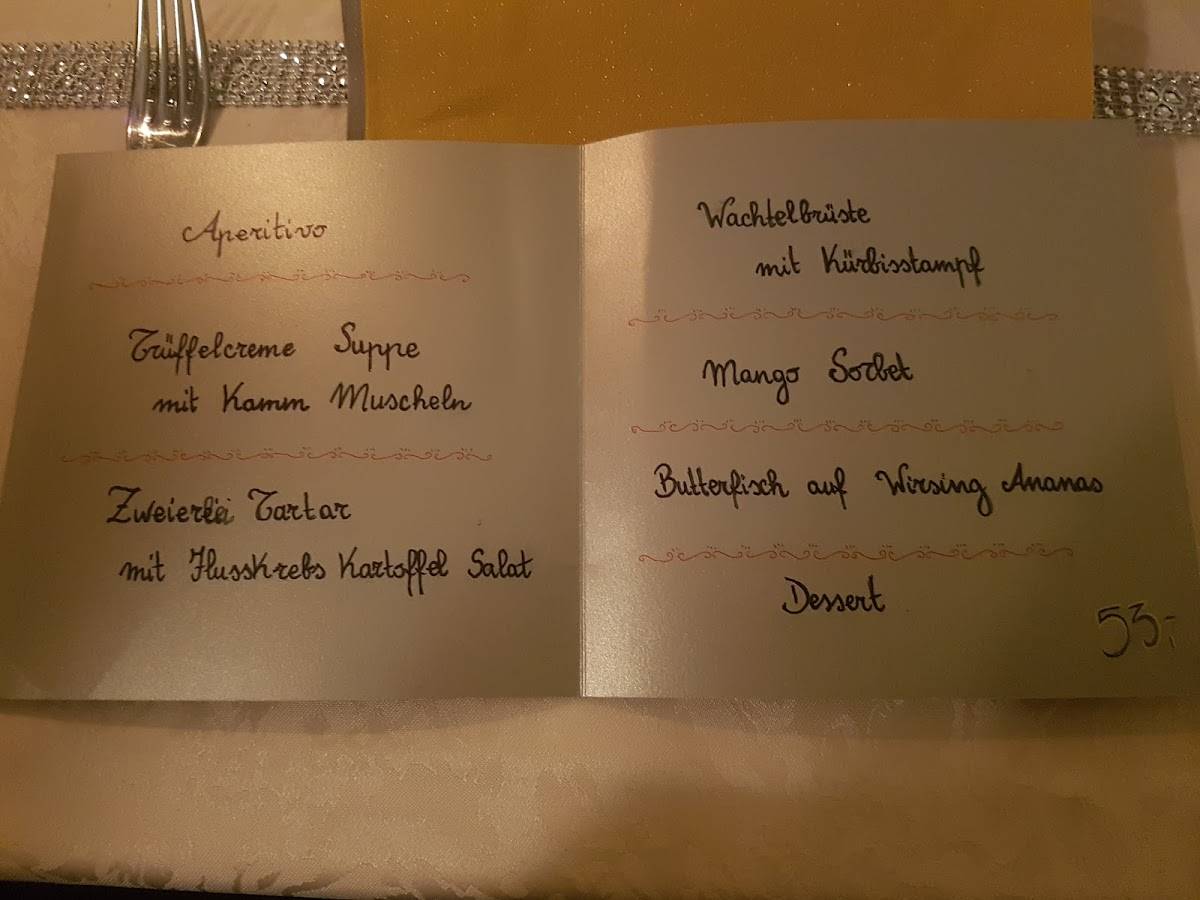 Aperitivo
Trüffelcreme Suppe
mit Kamm Muscheln
Zweierlei Tartar
mit Flusskrebs Kartoffel Salat
Wachtelbrüste
mit Kürbisstampf
Mango Sorbet
Butterfisch auf Wirsing Ananas
Dessert
53,-